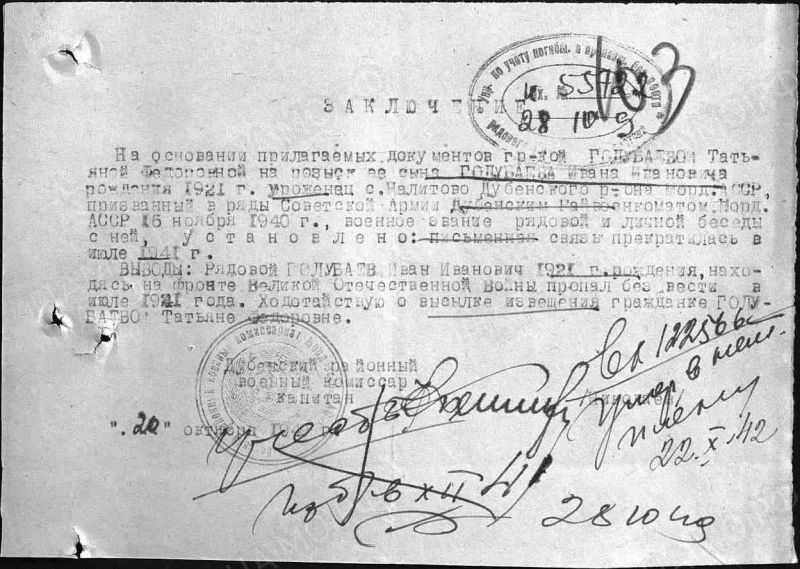 Упр. по учету погибш. и пропавш. без вести
вх. № 55722
28 10 9
103
ЗАКЛЮЧЕНИЕ
На основании прилагаемых документов гр-кой ГОЛУБАЕВОЙ Тать-
яной Федоровной на розыск ее сына ГОЛУБАЕВА Ивана Ивановича
рождения 1921 г. уроженец с.Налитово Дубенского р-она Морд.АССР,
призванный в ряды Советской Армии Дубенским Райвоенкоматом Морд.
АССР 16 ноября 1940 г., военное звание рядовой и личной беседы
с ней, установлено: письменная связь прекратилась в
июле 1941 г.
ВЫВОДЫ: Рядовой ГОЛУБАЕВ Иван Иванович 1921 г.рождения, нахо-
дясь на фронте Великой Отечественной Войны пропал без вести в
июле 1941 года. Ходотайствую о высылке извещения гражданке ГОЛУ-
БАЕВОЙ Татьяне Федоровне.
Дубенский районный
военный комиссар
капитан
"20" октября
Вх 122566
умер в нем.
плену
22.X.42
в XII 41
28 10 49